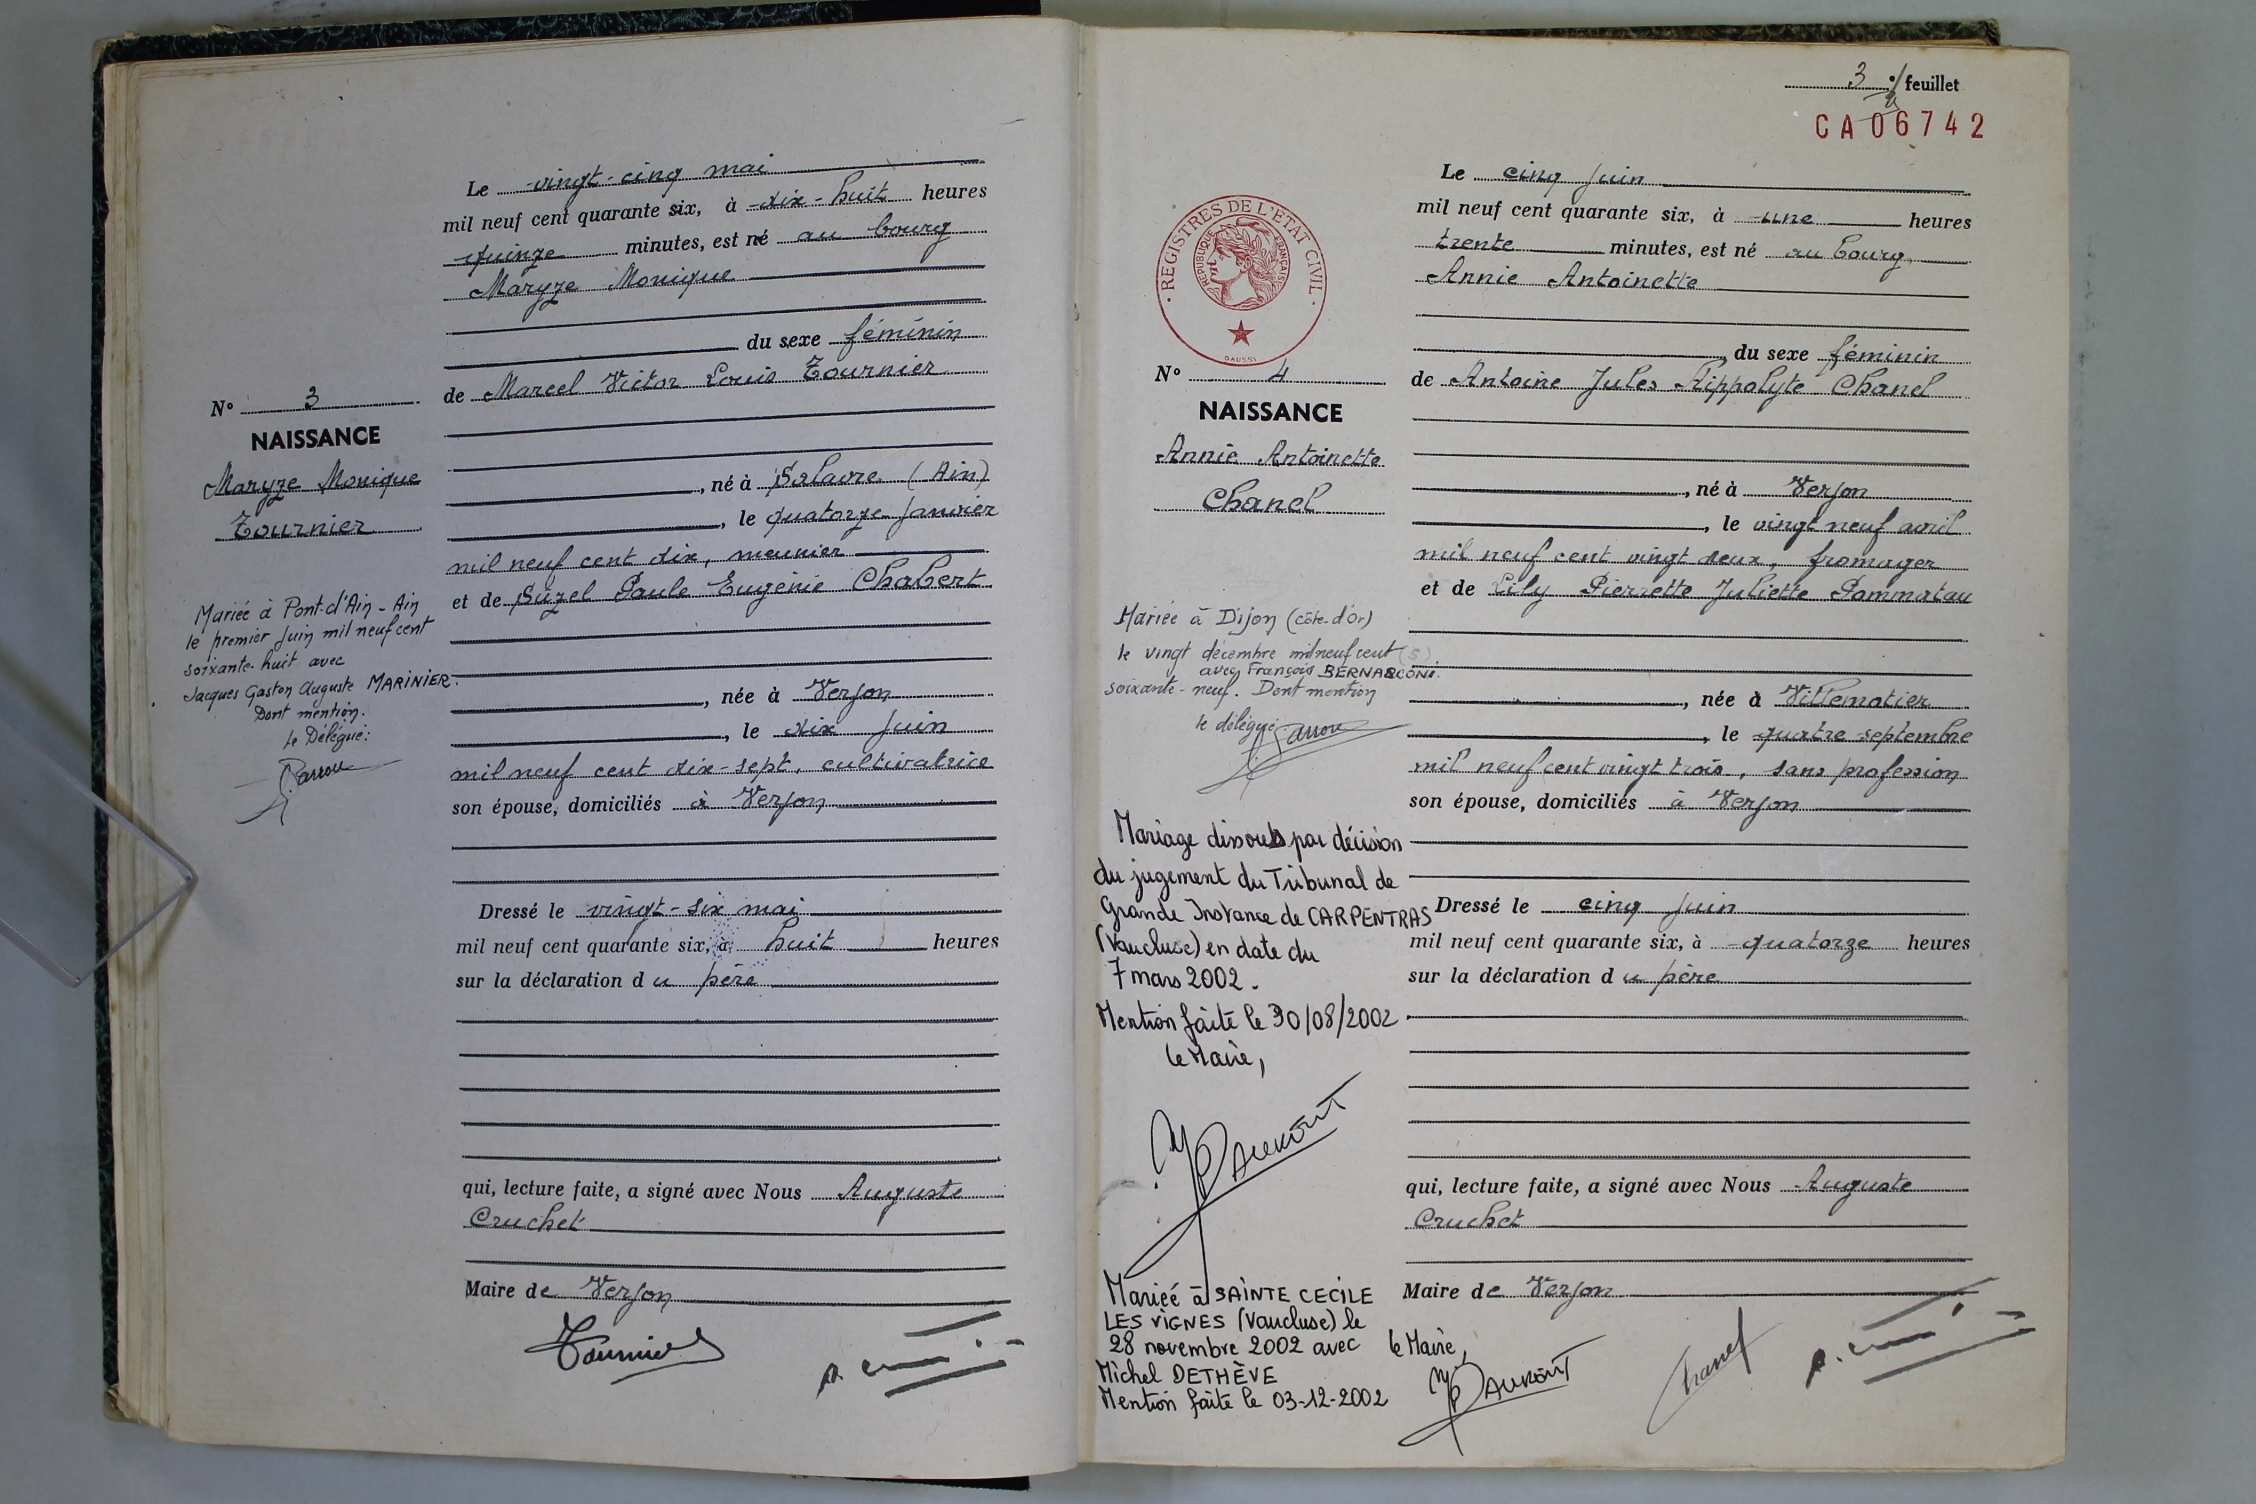 Le vingt-cinq mai
mil neuf cent quarante six, à dix-huit heures
quinze minutes, est né au bourg
Maryze Monique
du sexe féminin
de Marcel Victor Louis Tournier
N° 3
NAISSANCE
Maryze Monique
Tournier
, né à Salavre (Ain)
, le quatorze janvier
mil neuf cent dix, meunier
et de Suzel Paule Eugénie Chabert
Mariée à Pont d'Ain - Ain
le premier juin mil neuf cent
soixante-huit avec
Jacques Gaston Auguste MARINIER.
Dont mention.
le Délégué:
, née à Verjon
, le dix juin
mil neuf cent dix-sept, cultivatrice
son épouse, domiciliés à Verjon
Dressé le vingt-six mai
mil neuf cent quarante six, à huit heures
sur la déclaration du père
qui, lecture faite, a signé avec Nous Auguste
Cruchet
Maire de Verjon
Tournier
3 e/ feuillet
CA06742
Le cinq juin
mil neuf cent quarante six, à une heures
trente minutes, est né au bourg
Annie Antoinette
du sexe féminin
de Antoine Jules Hippolyte Chanel
REGISTRES DE L'ETAT CIVIL
REPUBLIQUE FRANÇAISE
DAUSSI
N° 4
NAISSANCE
Annie Antoinette
Chanel
, né à Verjon
, le vingt neuf avril
mil neuf cent vingt deux, fromager
et de Lily Pierrette Juliette Pommatau
Mariée à Dijon (Côte-d'Or)
le vingt décembre mil neuf cent (5)
avec François BERNARCONI.
soixante-neuf. Dont mention
le délégué
, née à Villematier
, le quatre septembre
mil neuf cent vingt trois, sans profession
son épouse, domiciliés à Verjon
Mariage dissous par décision
du jugement du Tribunal de
Grande Instance de CARPENTRAS
(Vaucluse) en date du
7 mars 2002.
Mention faite le 30/08/2002
le Maire,
Dressé le cinq juin
mil neuf cent quarante six, à quatorze heures
sur la déclaration du père
qui, lecture faite, a signé avec Nous Auguste
Cruchet
Maire de Verjon
Mariée à SAINTE CECILE
LES VIGNES (Vaucluse) le
28 novembre 2002 avec
Michel DETHÈVE
Mention faite le 03-12-2002
le Maire,
Chanel